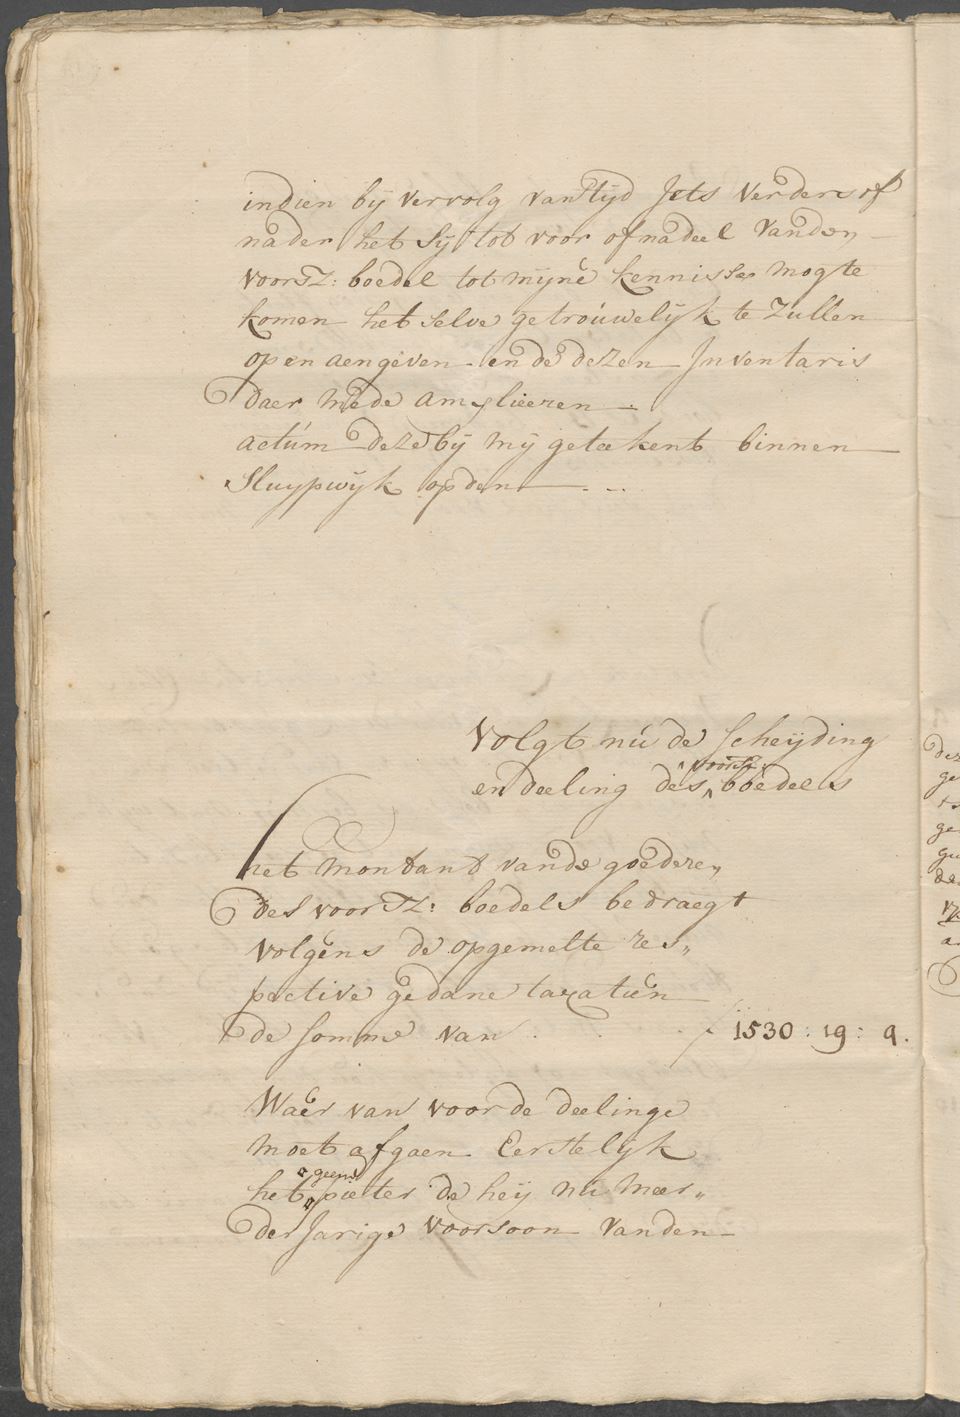 indien bij vervolg van tijd Jets verders of
nader het sij tot voor of nadeel vanden
voorsz: boedel tot mijne kennisse mogte
komen het selve getrouwelijk te zullen
open aengeven ende dezen Inventaris
daer mede amplieeren.
actum deze bij mij geteekent binnen
Sluypwijk op den - . . .
volgt nu de scheijding
en deeling des voorsz: boedels
het montant vande goederen
des voorsz: boedels bedraegt
volgens de opgemelte res„
pective gedane taxatien
de somme van . . . ƒ 1530 : 19 : 9.
Waer van voor de deelinge
moet afgaen Eerstelijk
het geene pieter de heij nu meer„
der Jarige voorsoon vanden